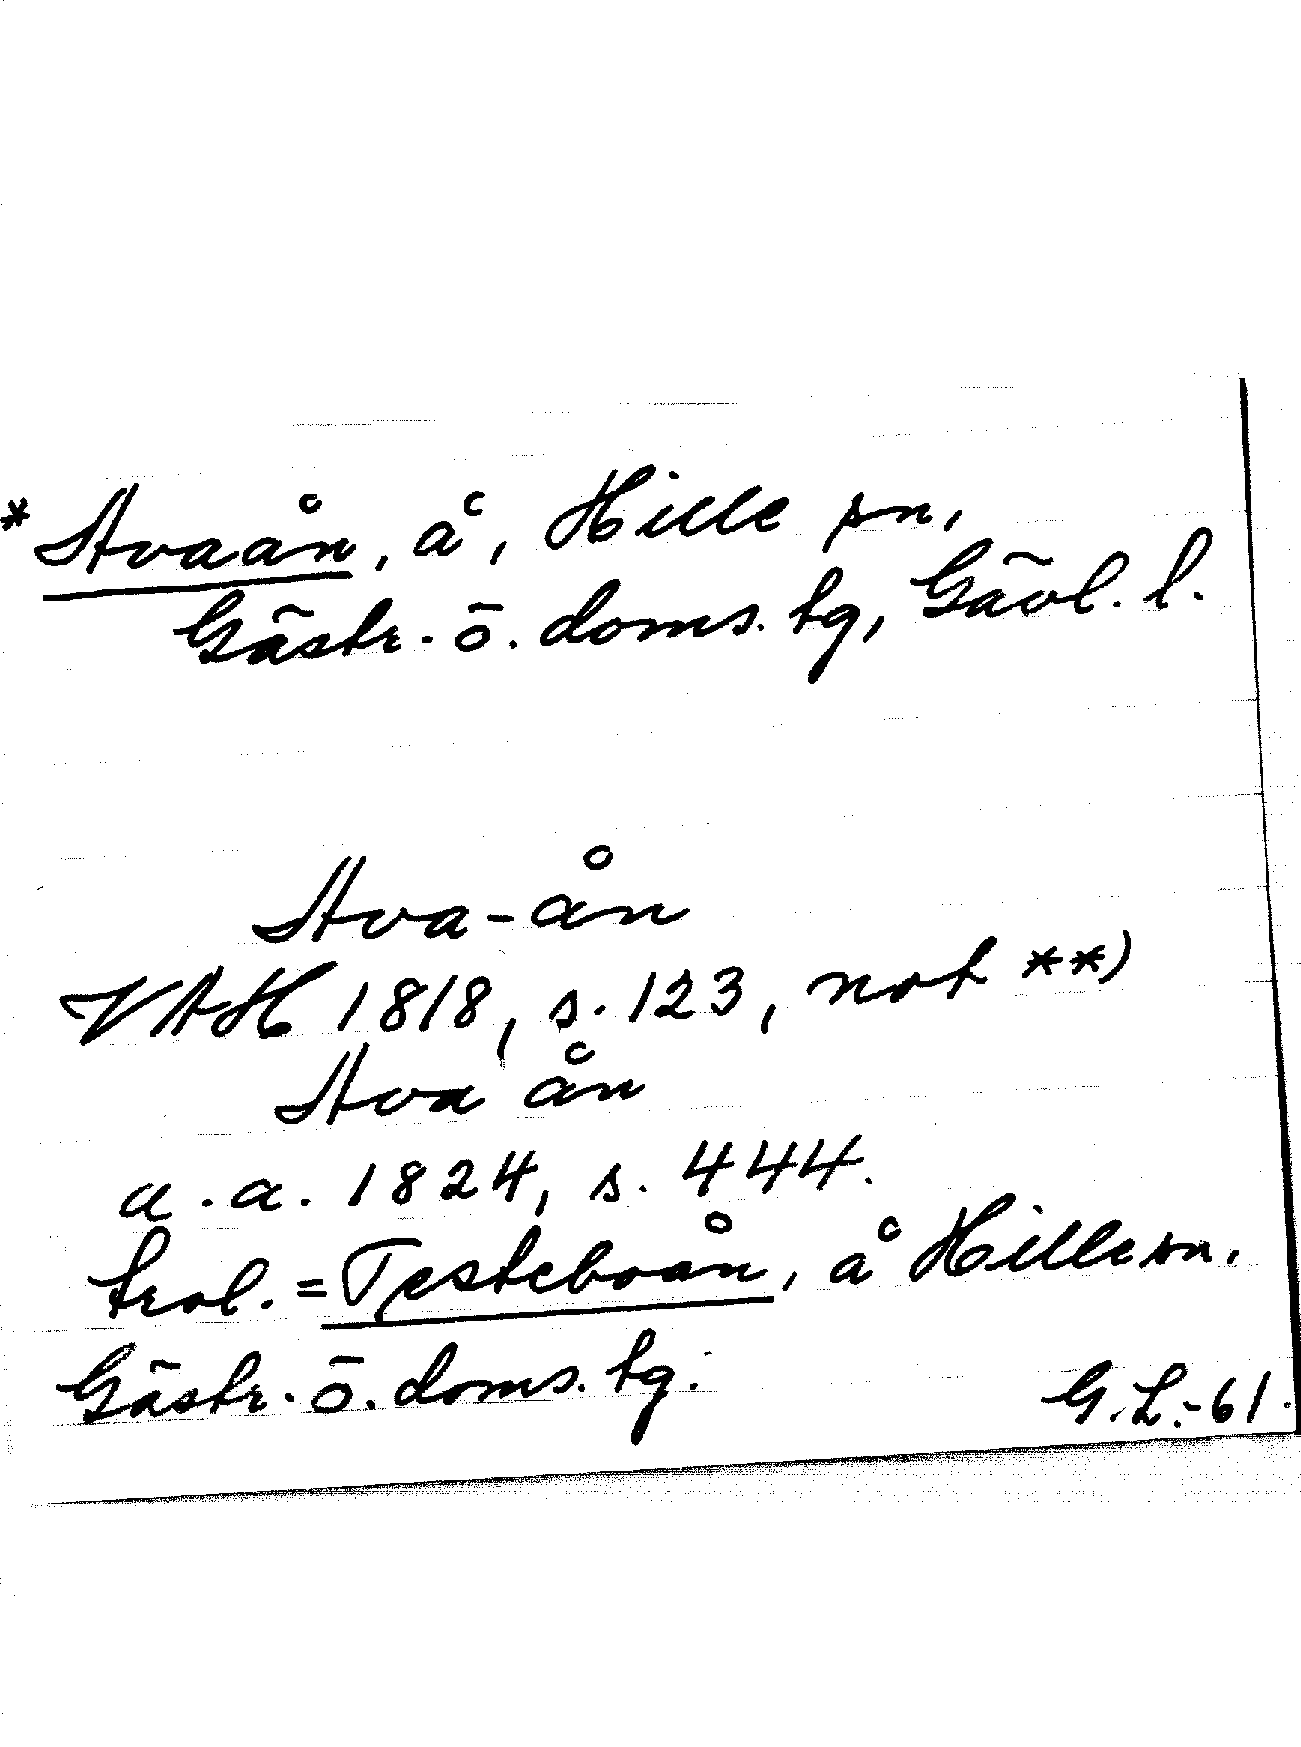 * Avaån, å, Hille sn,
Gästr. ö. doms. tg, Gävl. l.
Ava-ån
VAH 1818, s. 123, not **)
Ava ån
a. a. 1824, s. 444.
trol. = Testeboån, å Hille sn.
Gästr. ö. doms. tg.
G. L. -61.